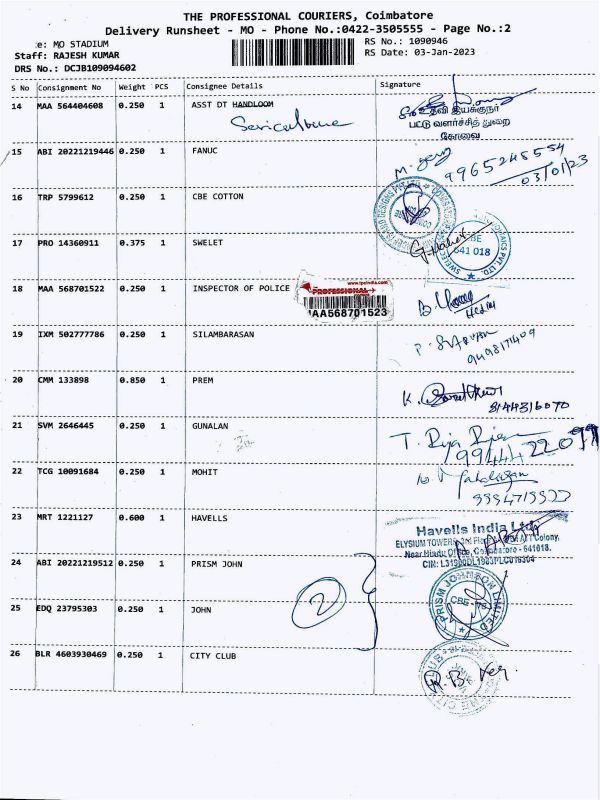 THE PROFESSIONAL COURIERS, Coimbatore
Delivery Runsheet - MO - Phone No.:0422-3505555 - Page No.:2
e: MO STADIUM
RS No.: 1090946
Staff: RAJESH KUMAR
RS Date: 03-Jan-2023
DRS No.: DCJB109094602
S No Consignment No Weight PCS Consignee Details Signature
14 MAA 564404608 0.250 1 ASST DT HANDLOOM
Sericulture
உதவி இயக்குநர்
பட்டு வளர்ச்சித் துறை
கோவை
15 ABI 20221219446 0.250 1 FANUC
9965245554
03/01/23
16 TRP 5799612 0.250 1 CBE COTTON
17 PRO 14360911 0.375 1 SWELET
CBE
641 018
PVT. LTD.
18 MAA 568701522 0.250 1 INSPECTOR OF POLICE
www.tpcindia.com
THE PROFESSIONAL
MAA568701523
19 IXM 502777786 0.250 1 SILAMBARASAN
9498171409
20 CMM 133898 0.850 1 PREM
8144316070
21 SVM 2646445 0.250 1 GUNALAN
T. Raja
22 TCG 10091684 0.250 1 MOHIT
23 MRT 1221127 0.600 1 HAVELLS
Havells India Ltd.
ELYSIUM TOWERS, 3rd Floor, ATT Colony,
Near Hindu Office, Coimbatore - 641018.
CIN: L31900DL1983PLC016304
24 ABI 20221219512 0.250 1 PRISM JOHN
2
PRISM JOHNSON LIMITED
CBE - 18
25 EDQ 23795303 0.250 1 JOHN
26 BLR 4603930469 0.250 1 CITY CLUB